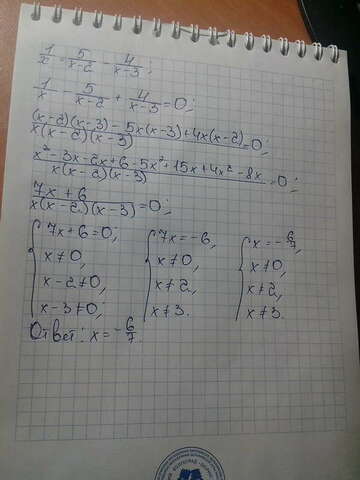 1/x = 5/(x-2) - 4/(x-3);
1/x - 5/(x-2) + 4/(x-3) = 0;
((x-2)(x-3) - 5x(x-3) + 4x(x-2))/(x(x-2)(x-3)) = 0;
(x² - 3x - 2x + 6 - 5x² + 15x + 4x² - 8x)/(x(x-2)(x-3)) = 0;
(7x + 6)/(x(x-2)(x-3)) = 0;
{ 7x + 6 = 0, { 7x = -6, { x = -6/7,
x ≠ 0, x ≠ 0, x ≠ 0,
x - 2 ≠ 0, x ≠ 2, x ≠ 2,
x - 3 ≠ 0; x ≠ 3. x ≠ 3.
Ответ: x = -6/7.